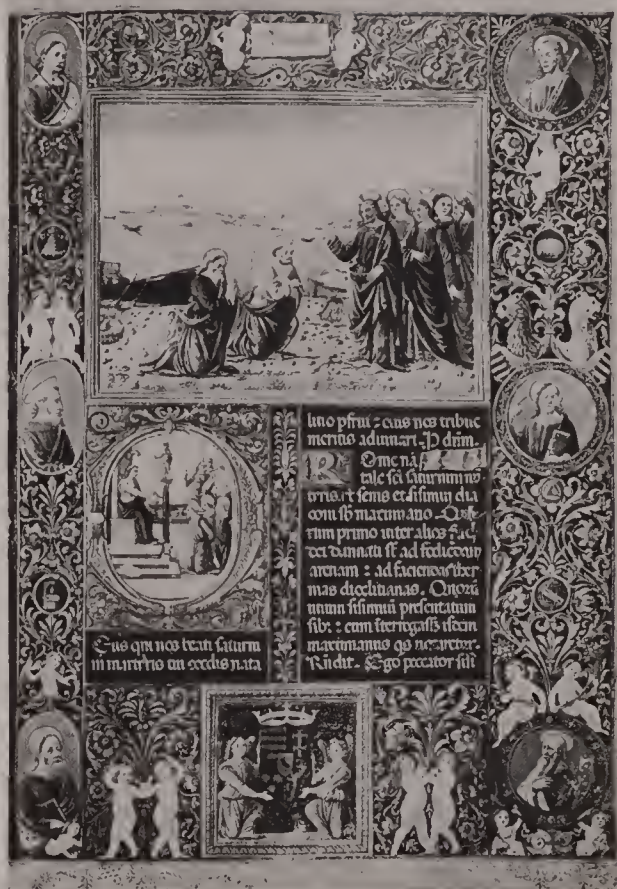 Eus qui nos beati saturni
ni martiris tui concedis nata
litio pfrui: eius nos tribue
meritis adiuvari. P dnm.
Rome na
tale sci saturnini m
tiris et senis et sisinnii dia
coni sb maximiano
primo inter alios
dei dannati st ad
arenam: ad faciendas ther
mas dioclitianas. Quorum
unum sisinnium presentatum
sibi: cum
maximianus qs nocaretur.
Rndit. Ego peccator sisi